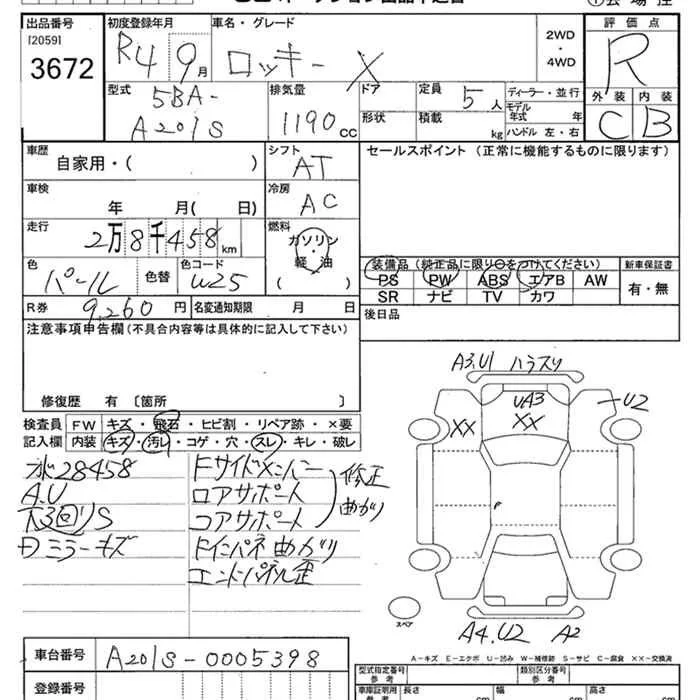 出品番号
[2059]
3672
初度登録年月
R4 9月
車名・グレード
ロッキー X
2WD
・
4WD
評価点
R
外装 内装
C B
型式
5BA-
A201S
排気量
1190 cc
ドア
定員
5人
ディーラー・並行
モデル年式 年
形状
積載
kg
ハンドル 左・右
車歴
自家用・( )
シフト
AT
セールスポイント(正常に機能するものに限ります)
車検
年 月( 日)
冷房
AC
走行
2万8千458km
燃料
ガソリン
・
軽油
( )
色
パール
色替
色コード
W25
装備品(純正品に限り○をつけてください)
PS PW ABS エアB AW
SR ナビ TV カワ
新車保証書
有・無
R券 9,260円
名変通知期限 月 日
後日品
注意事項申告欄(不具合内容等は具体的に記入して下さい)
修復歴 有〔箇所 〕
検査員
記入欄
FW キズ・飛石・ヒビ割・リペア跡・×要
内装 キズ・汚レ・コゲ・穴・スレ・キレ・破レ
28458
A.U
下3回りS
ミラーキズ
Fサイドメンバー
ロアサポート
コアサポート
修正
曲がり
Fインパネ曲がり
エンドパネル歪
A3.U1 ハラスリ
UA3
XX
XX
U2
A4.U2 A2
スペア
A-キズ E-エクボ U-凹み W-補修跡 S-サビ C-腐食 XX-交換済
車台番号
A201S-0005398
登録番号
型式指定番号
参考
類別区分番号
参考
車庫証明用
参考
長さ cm
幅 cm
高さ cm